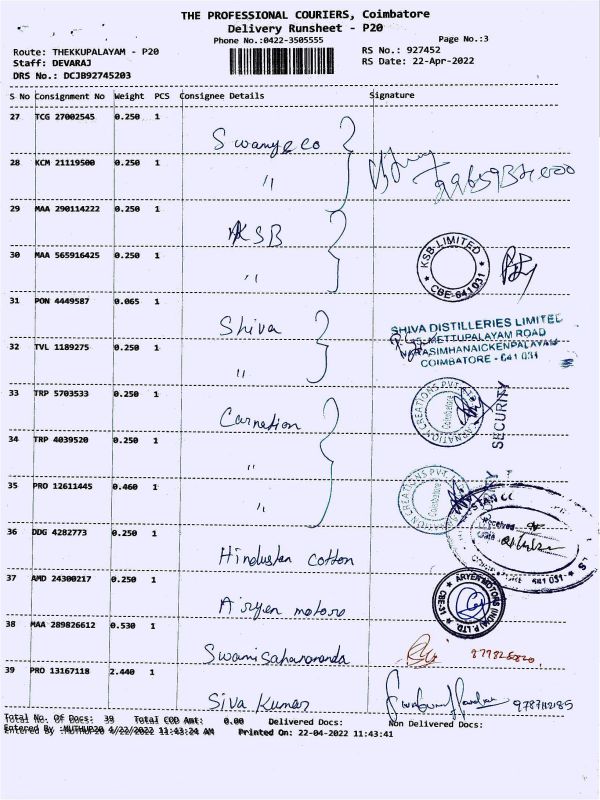 THE PROFESSIONAL COURIERS, Coimbatore
Delivery Runsheet - P20
Phone No.:0422-3505555
Page No.:3
Route: THEKKUPALAYAM - P20
RS No.: 927452
Staff: DEVARAJ
RS Date: 22-Apr-2022
DRS No.: DCJB92745203
S No Consignment No Weight PCS Consignee Details Signature
27 TCG 27002545 0.250 1
28 KCM 21119500 0.250 1
"
29 MAA 290114222 0.250 1
KSB
30 MAA 565916425 0.250 1
"
KSB LIMITED
CBE-641 031
31 PON 4449587 0.065 1
Shiva
SHIVA DISTILLERIES LIMITED
METTUPALAYAM ROAD
NARASIMHANAICKENPALAYAM
COIMBATORE - 641 031
32 TVL 1189275 0.250 1
"
33 TRP 5703533 0.250 1
Carnation
CARNATION CREATIONS PVT
Coimbatore
SECURITY
34 TRP 4039520 0.250 1
"
35 PRO 12611445 0.460 1
"
36 DDG 4282773 0.250 1
Hindustan cotton
641 031
37 AMD 24300217 0.250 1
Aryen motors
ARYEN MOTORS (INDIA) P. LTD.
CBE-31
38 MAA 289826612 0.530 1
Swamisahananda
39 PRO 13167118 2.440 1
Siva Kumar
9787112185
Total No. Of Docs: 39 Total COD Amt: 0.00 Delivered Docs: Non Delivered Docs:
Entered By :MUTHUP20 4/22/2022 11:43:24 AM Printed On: 22-04-2022 11:43:41